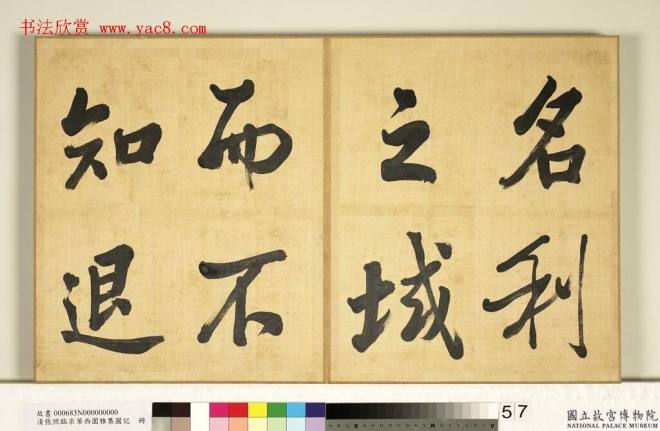 书法欣赏 www.yac8.com
名利
之域
而不
知退
故書 000683N000000000
清張照臨米芾西園雅集圖記 冊
57
國立故宮博物院
NATIONAL PALACE MUSEUM